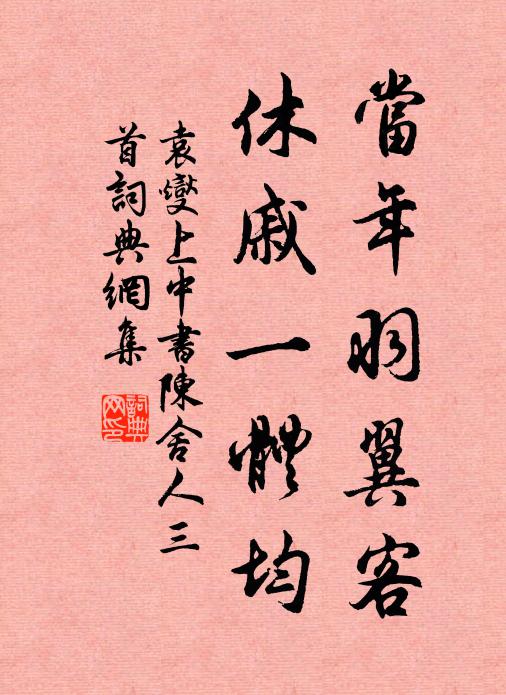 當年羽翼客
休戚一體均
袁燮上中書陳舍人三
首詞典網集
詞典網印